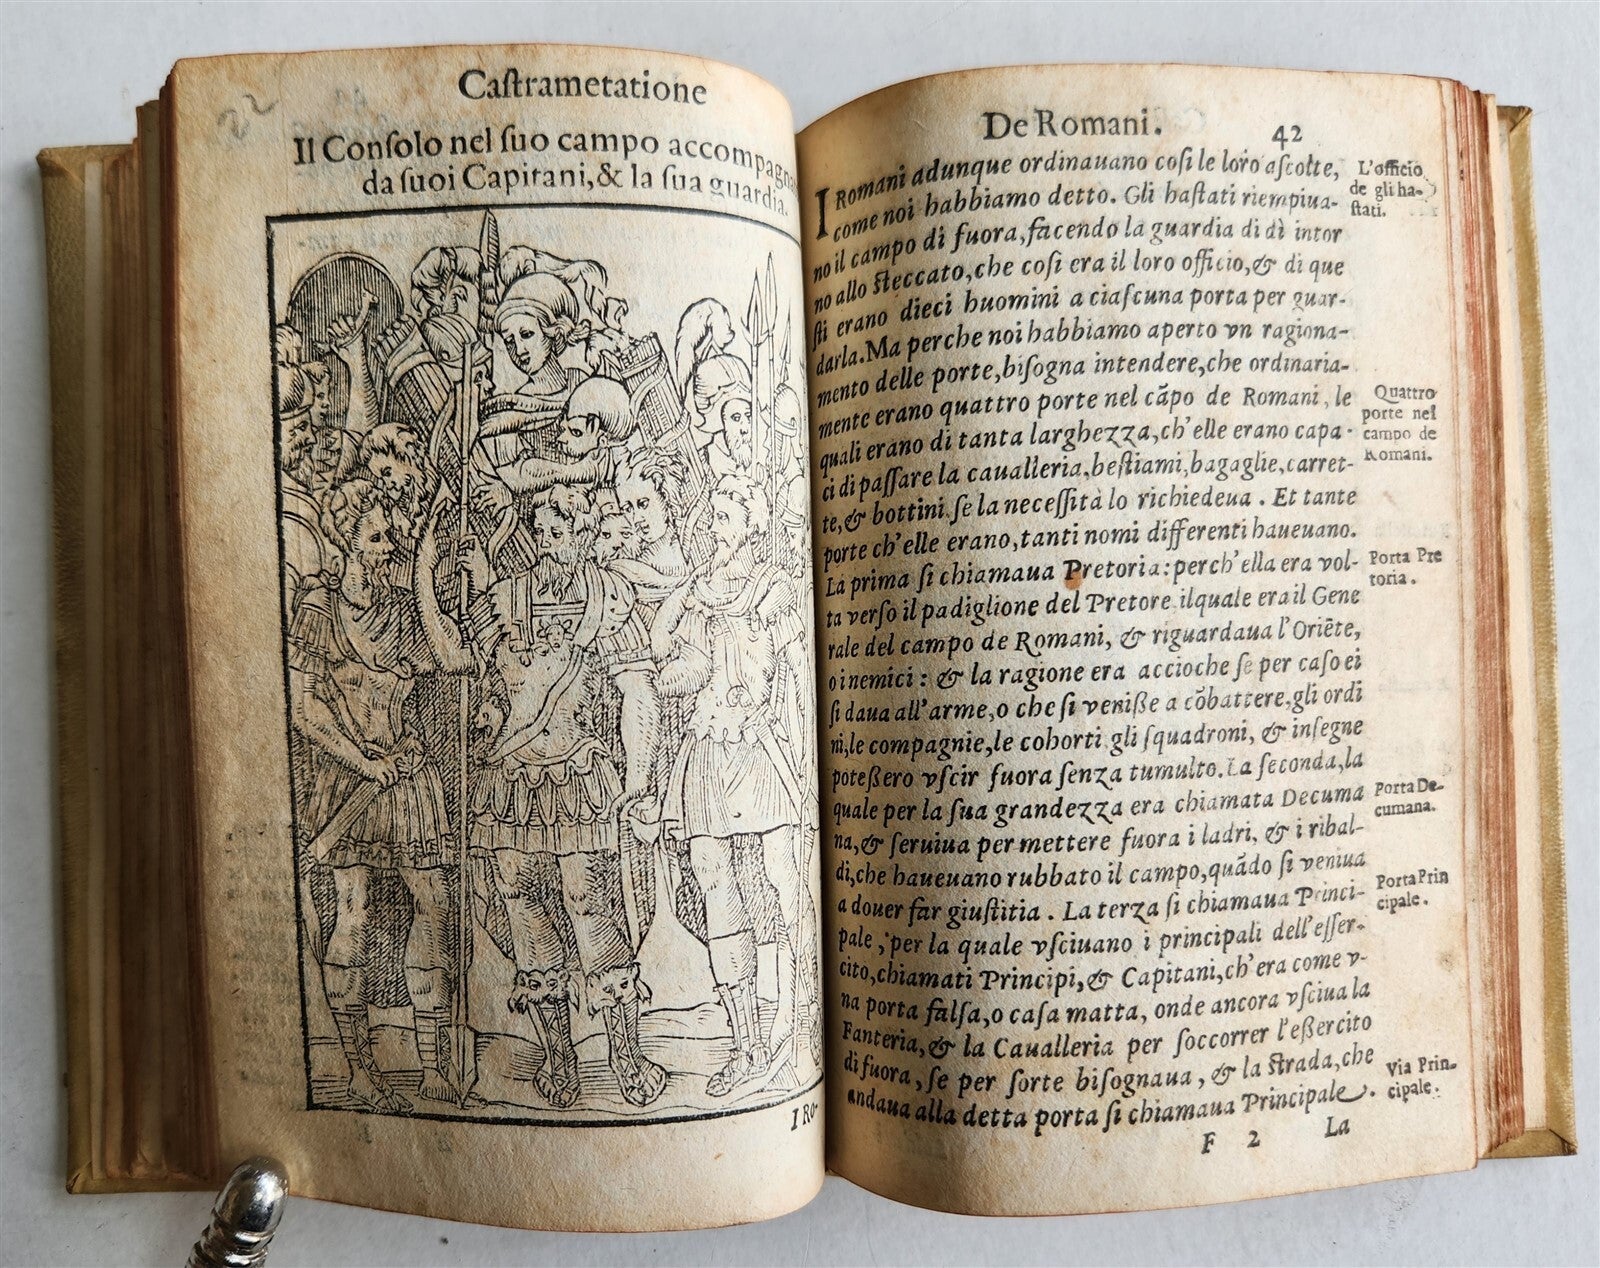 22
Caſtrametatione
Il Conſolo nel ſuo campo accompagna
da ſuoi Capitani, & la ſua guardia.
I RO-
De Romani.
42
I Romani adunque ordinauano coſi le loro aſcolte,
come noi habbiamo detto. Gli haſtati riempiua-
no il campo di fuora, facendo la guardia di dì intor
no allo ſteccato, che coſi era il loro officio, & di que
ſti erano dieci huomini a ciaſcuna porta per guar-
darla. Ma perche noi habbiamo aperto vn ragiona-
mento delle porte, biſogna intendere, che ordinaria-
mente erano quattro porte nel cãpo de Romani, le
quali erano di tanta larghezza, ch'elle erano capa-
ci di paſſare la caualleria, beſtiami, bagaglie, carret-
te, & bottini ſe la neceſſità lo richiedeua. Et tante
porte ch'elle erano, tanti nomi differenti haueuano.
La prima ſi chiamaua Pretoria: perch'ella era vol-
ta verſo il padiglione del Pretore ilquale era il Gene
rale del campo de Romani, & riguardaua l'Oriẽte,
o inemici: & la ragione era accioche ſe per caſo ei
ſi daua all'arme, o che ſi veniße a cõbattere, gli ordi
ni, le compagnie, le cohorti gli ſquadroni, & inſegne
poteßero vſcir fuora ſenza tumulto. La ſeconda, la
quale per la ſua grandezza era chiamata Decuma
na, & ſeruiua per mettere fuora i ladri, & i ribal-
di, che haueuano rubbato il campo, quãdo ſi veniua
a douer far giuſtitia. La terza ſi chiamaua Princi-
pale, per la quale vſciuano i principali dell'eſſer-
cito, chiamati Principi, & Capitani, ch'era come v-
na porta falſa, o caſa matta, onde ancora vſciua la
Fanteria, & la Caualleria per ſoccorrer l'eßercito
di fuora, ſe per ſorte biſognaua, & la ſtrada, che
andaua alla detta porta ſi chiamaua Principale.
F 2 La
L'officio
de gli ha-
ſtati.
Quattro
porte nel
campo de
Romani.
Porta Pre
toria.
Porta De-
cumana.
Porta Prin
cipale.
Via Prin-
cipale.